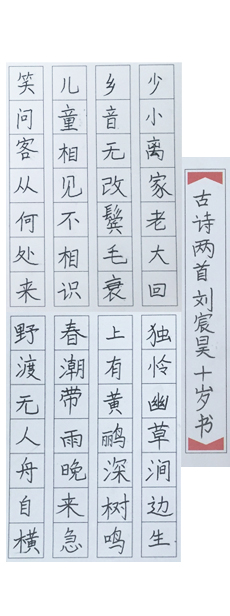 古诗两首 刘宸昊十岁书
少小离家老大回
乡音无改鬓毛衰
儿童相见不相识
笑问客从何处来
独怜幽草涧边生
上有黄鹂深树鸣
春潮带雨晚来急
野渡无人舟自横